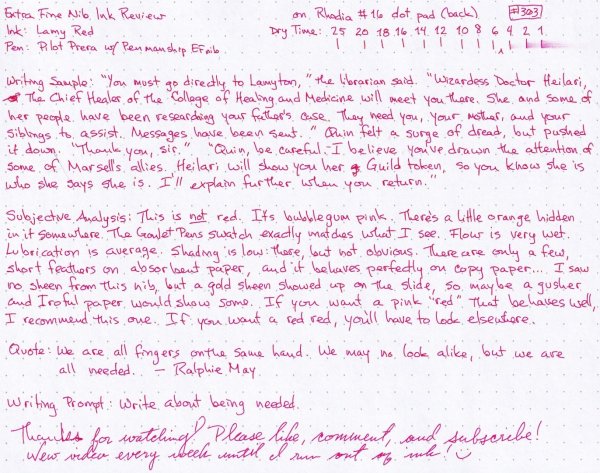 Extra Fine Nib Ink Review on Rhodia #16 dot pad (back) #303
Ink: Lamy Red Dry Time: 25 20 18 16 14 12 10 8 6 4 2 1
Pen: Pilot Prera w/ Penmanship EF nib
Writing Sample: "You must go directly to Lamyton," the librarian said. "Wizardess Doctor Heilari,
The Chief Healer of the College of Healing and Medicine will meet you there. She and some of
her people have been researching your father's case. They need you, your mother, and your
siblings to assist. Messages have been sent." Quin felt a surge of dread, but pushed
it down. "Thank you, sir." "Quin, be careful. I believe you've drawn the attention of
some of Marsell's allies. Heilari will show you her Guild token, so you know she is
who she says she is. I'll explain further when you return."
Subjective Analysis: This is not red. It's bubblegum pink. There's a little orange hidden
in it somewhere. The Goulet Pens swatch exactly matches what I see. Flow is very wet.
Lubrication is average. Shading is low: there, but not obvious. There are only a few,
short feathers on absorbent paper, and it behaves perfectly on copy paper.... I saw
no sheen from this nib, but a gold sheen showed up on the slide, so maybe a gusher
and Iroful paper would show some. If you want a pink "red" that behaves well,
I recommend this one. If you want a red red, you'll have to look elsewhere.
Quote: We are all fingers on the same hand. We may no look alike, but we are
all needed. — Ralphie May
Writing Prompt: Write about being needed.
Thanks for watching! Please like, comment, and subscribe!
New video every week until I run out of ink!